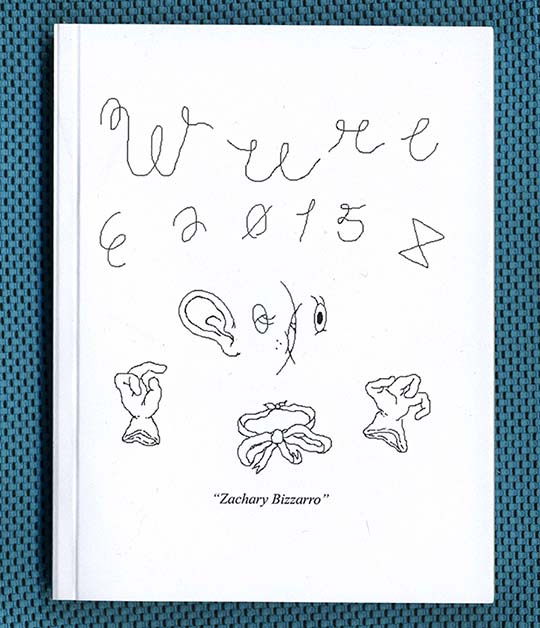 Wure
2015
“Zachary Bizzarro”